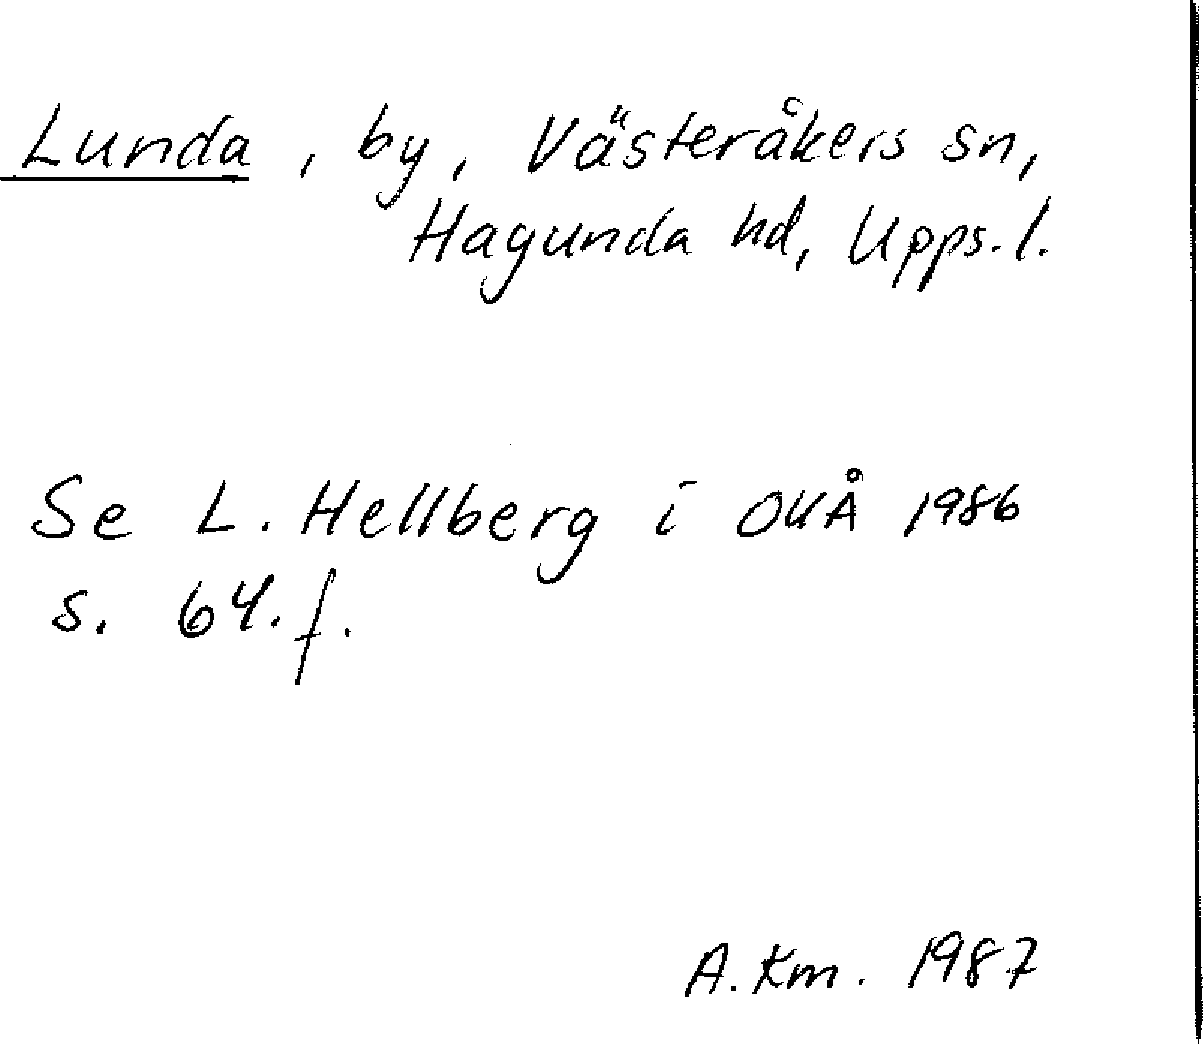 Lunda, by, Västeråkers sn,
Hagunda hd, Upps. l.
Se L. Hellberg i OUÅ 1986
s. 64. f.
A. Km. 1987